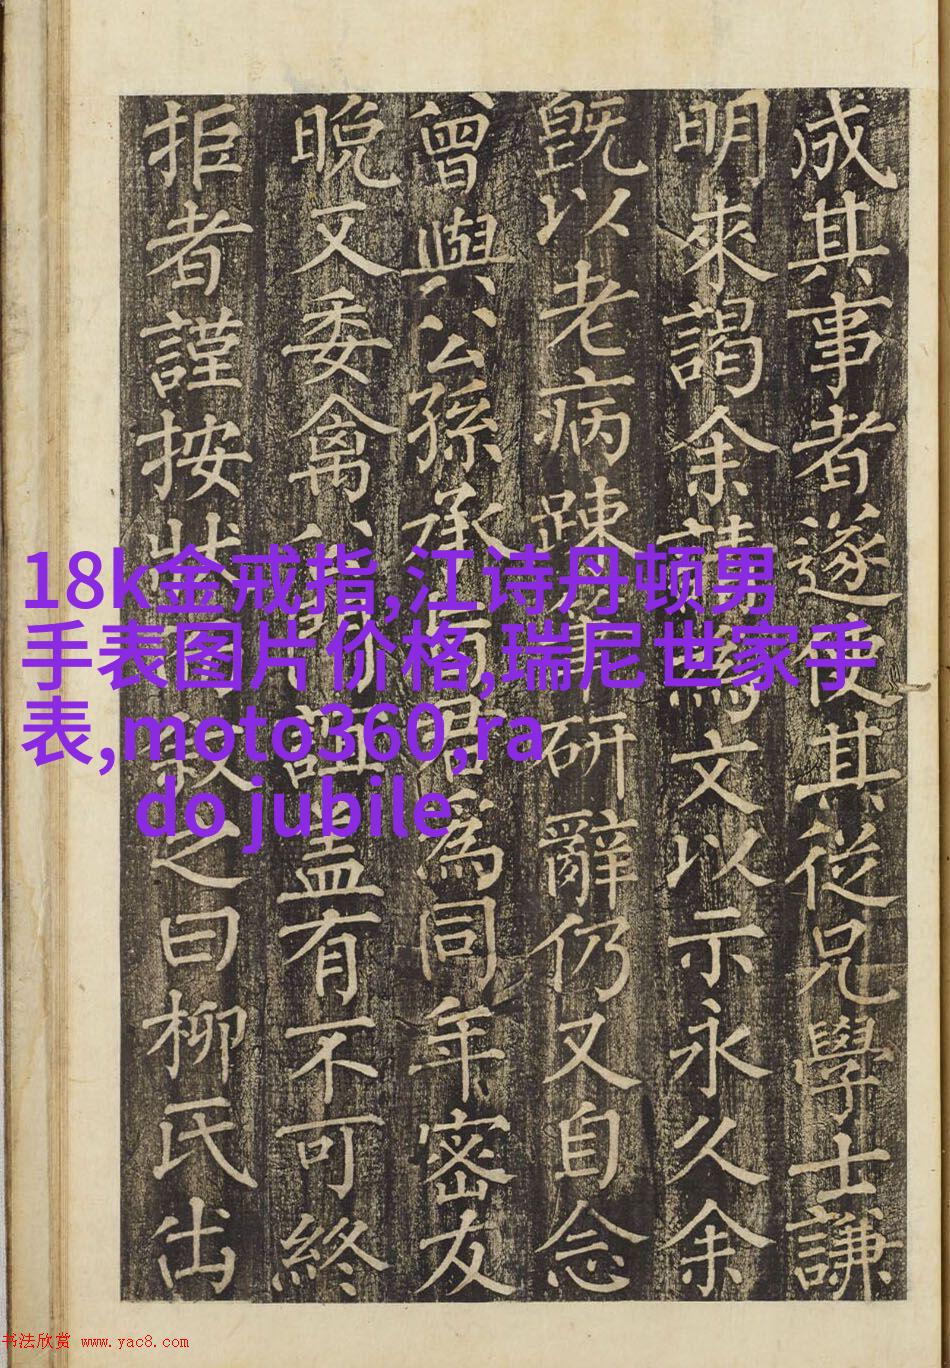 成其事者遂使其從兄學士謙
明來謁余請爲文以示永久余
旣以老病踈研辭仍又自念
曾與公孫承旨君爲同年密友
晩又委禽誼盖有不可終
拒者謹按狀叙之曰柳氏出
18k金戒指,江诗丹顿男
手表图片价格,瑞尼世家手
表,moto360,ra
do jubile
书法欣赏 www.yac8.com